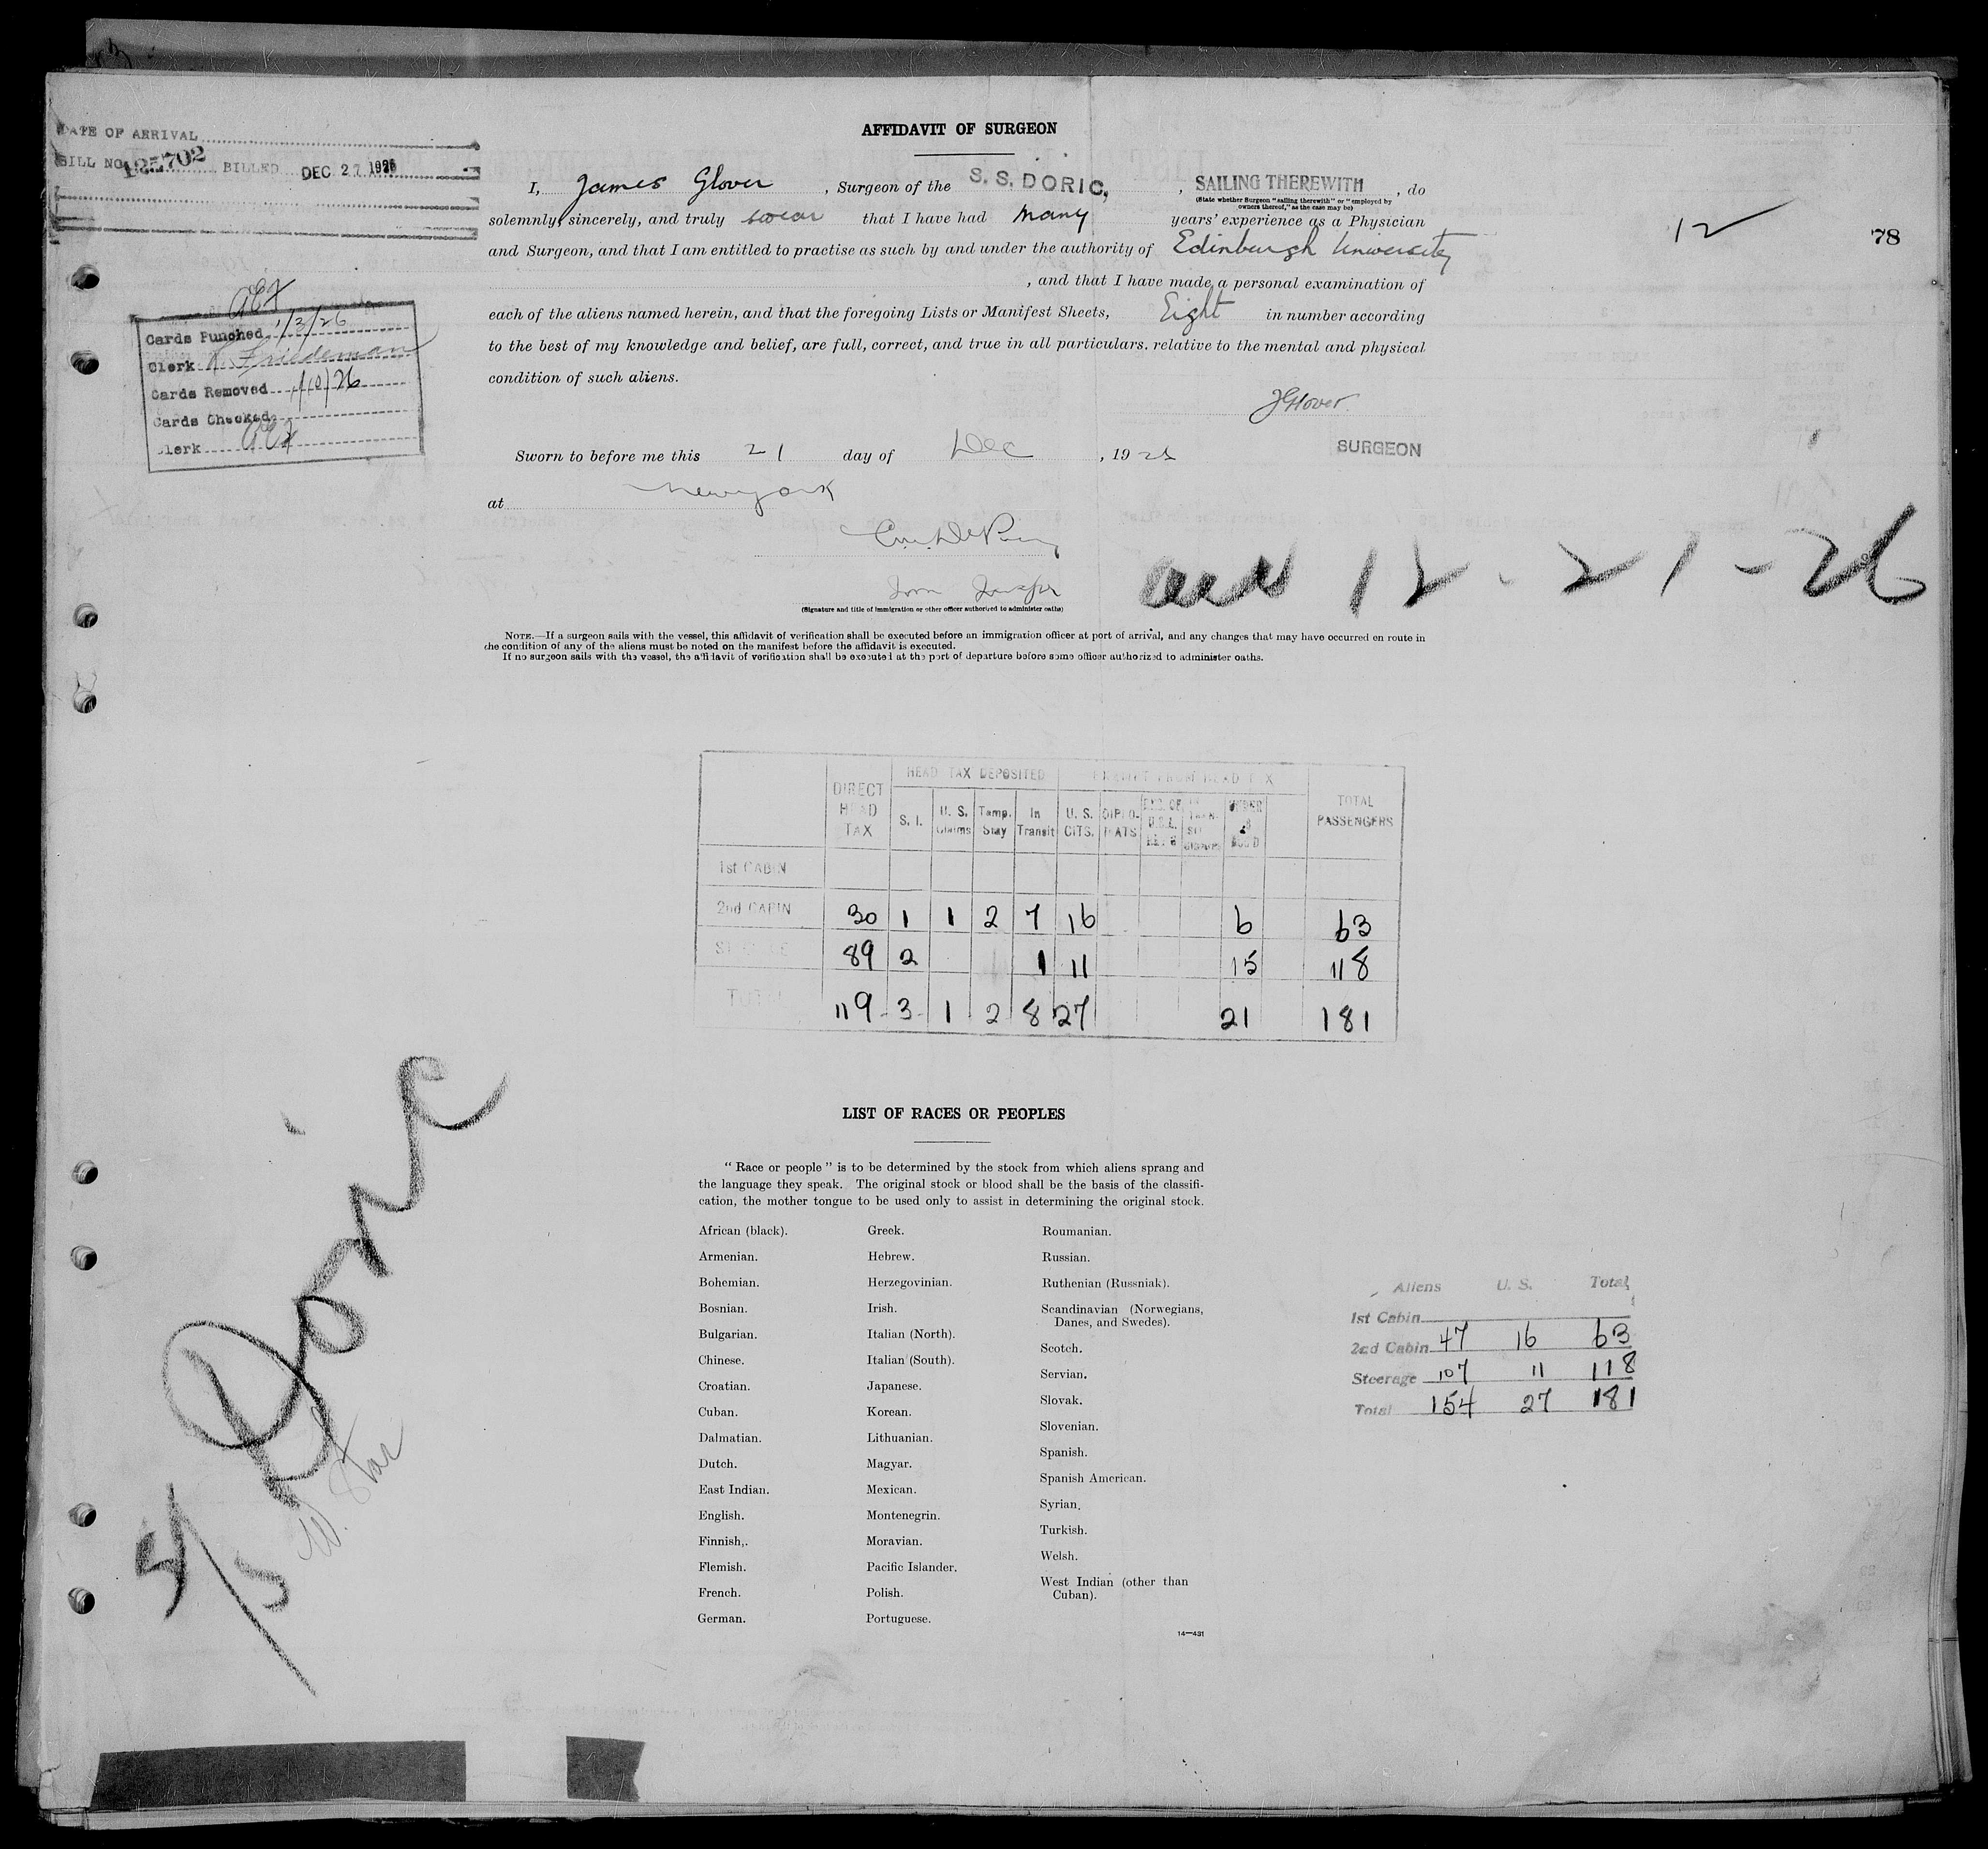 DATE OF ARRIVAL
BILL NO. 125702 BILLED DEC 27 1926
AFFIDAVIT OF SURGEON
I, James Glover, Surgeon of the S. S. DORIC, SAILING THEREWITH, do
(State whether Surgeon "sailing therewith" or "employed by
owners thereof," as the case may be)
solemnly, sincerely, and truly swear that I have had many years' experience as a Physician
and Surgeon, and that I am entitled to practise as such by and under the authority of Edinburgh University
, and that I have made a personal examination of
each of the aliens named herein, and that the foregoing Lists or Manifest Sheets, Eight in number according
to the best of my knowledge and belief, are full, correct, and true in all particulars. relative to the mental and physical
condition of such aliens.
JGlover.
SURGEON
Sworn to before me this 21 day of Dec, 19
at New York
(Signature and title of immigration or other officer authorized to administer oaths)
12
78
12-21-26
Cards Punched 1/3/26
Clerk Friedeman
Cards Removed 1/10/26
Cards Checked
Clerk
NOTE.—If a surgeon sails with the vessel, this affidavit of verification shall be executed before an immigration officer at port of arrival, and any changes that may have occurred en route in
the condition of any of the aliens must be noted on the manifest before the affidavit is executed.
If no surgeon sails with the vessel, the affidavit of verification shall be executed at the port of departure before some officer authorized to administer oaths.
HEAD TAX DEPOSITED EXEMPT FROM HEAD TAX
DIRECT HEAD TAX S. I. U. S. Claims Temp. Stay In Transit U. S. CITS. DIPLOMATS UNDER TOTAL PASSENGERS
1st CABIN
2nd CABIN 30 1 1 2 7 16 6 63
STEERAGE 89 2 1 11 15 118
TOTAL 119 3 1 2 8 27 21 181
LIST OF RACES OR PEOPLES
"Race or people" is to be determined by the stock from which aliens sprang and
the language they speak. The original stock or blood shall be the basis of the classifi-
cation, the mother tongue to be used only to assist in determining the original stock.
African (black).
Armenian.
Bohemian.
Bosnian.
Bulgarian.
Chinese.
Croatian.
Cuban.
Dalmatian.
Dutch.
East Indian.
English.
Finnish,.
Flemish.
French.
German.
Greek.
Hebrew.
Herzegovinian.
Irish.
Italian (North).
Italian (South).
Japanese.
Korean.
Lithuanian.
Magyar.
Mexican.
Montenegrin.
Moravian.
Pacific Islander.
Polish.
Portuguese.
Roumanian.
Russian.
Ruthenian (Russniak).
Scandinavian (Norwegians,
Danes, and Swedes).
Scotch.
Servian.
Slovak.
Slovenian.
Spanish.
Spanish American.
Syrian.
Turkish.
Welsh.
West Indian (other than
Cuban).
14—431
Aliens U. S. Total
1st Cabin
2nd Cabin 47 16 63
Steerage 107 11 118
Total 154 27 181
S/S Doric
W. Star